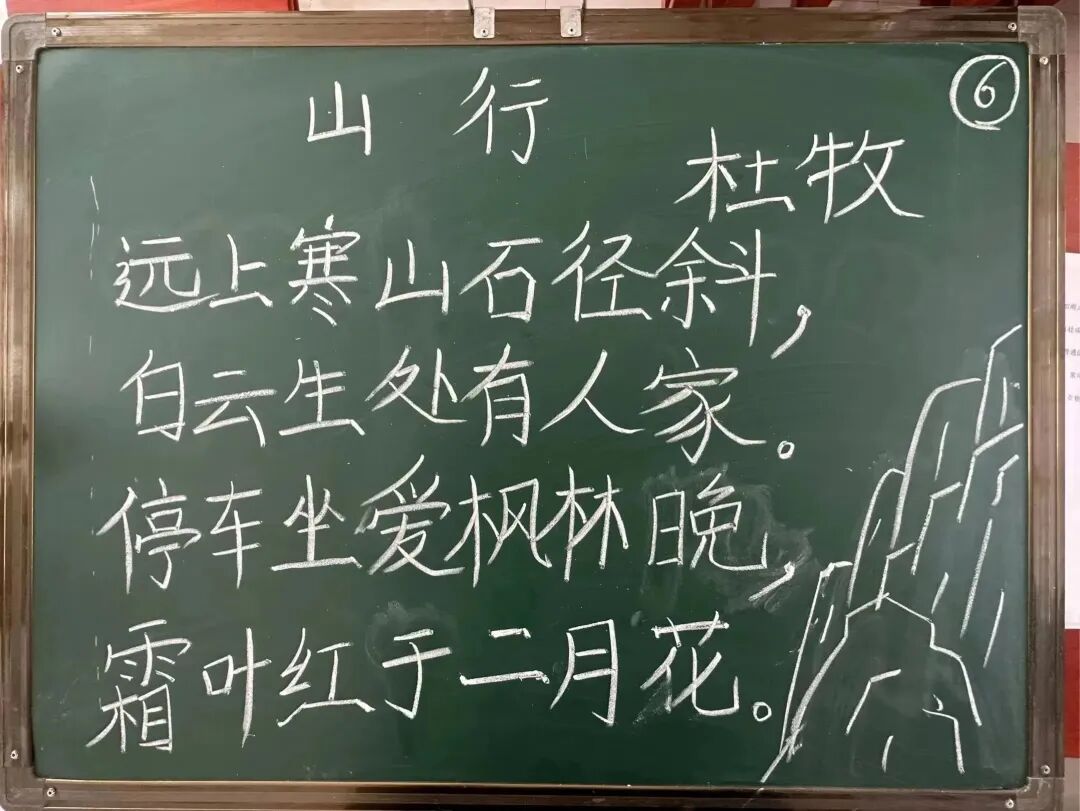 ⑥
山 行
杜牧
远上寒山石径斜，
白云生处有人家。
停车坐爱枫林晚，
霜叶红于二月花。